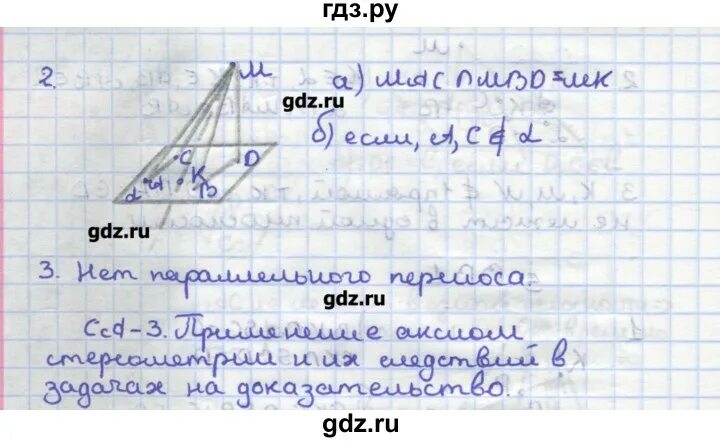 гдз.ру
2.
M
а) MAC ∩ MBD = MK
gdz.ru
б) если, A, C ∉ α
C
K
D
A
B
α
gdz.ru
3. Нет параллельного переноса.
gdz.ru
СА-3. Применение аксиом
стереометрии и их следствий в
gdz.ru
задачах на доказательство.
gdz.ru